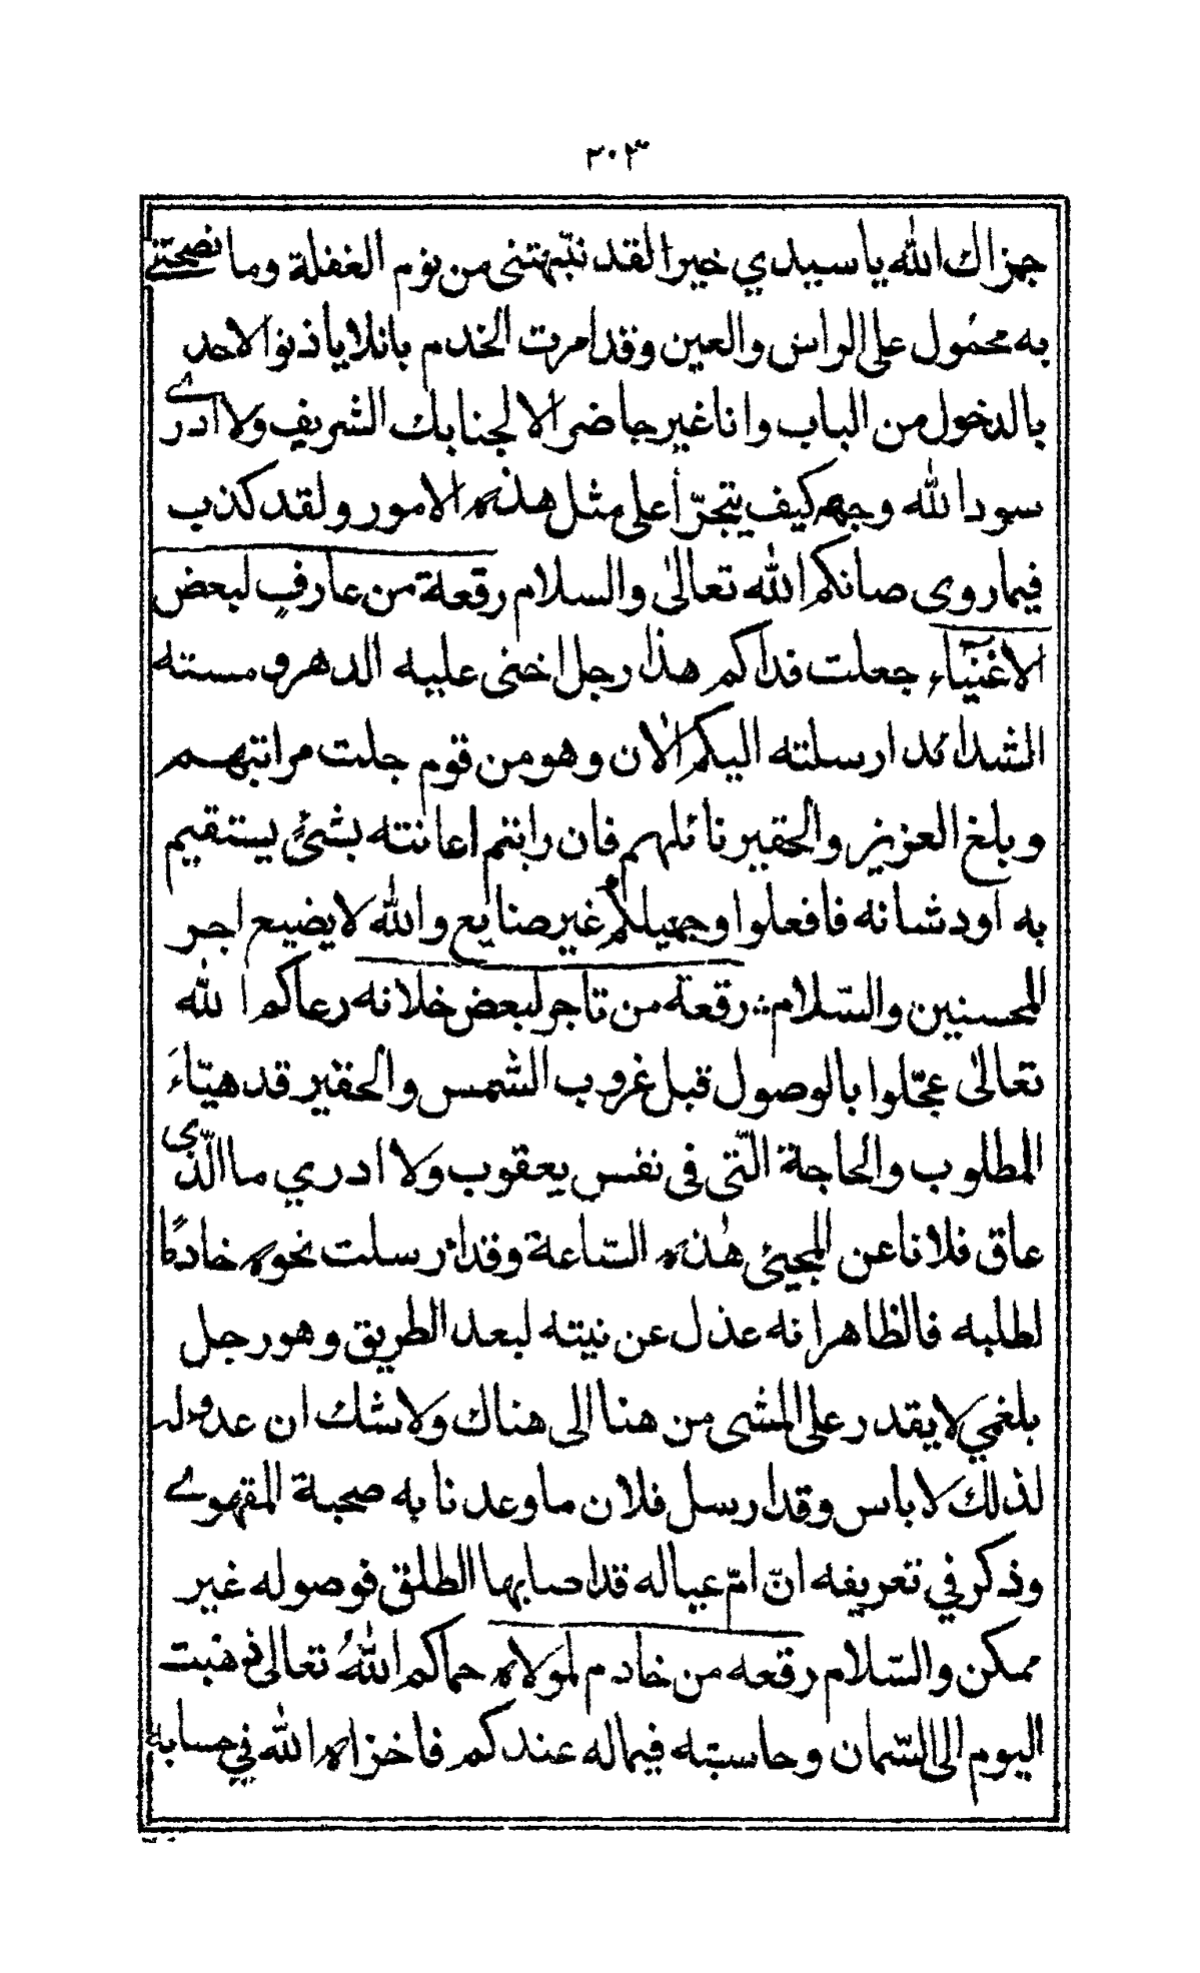 ٣٠٣
جزاك الله ياسيدي خيرا لقد نبّهتنى من نوم الغفلة وما نصحتنے
به محمول على الراس والعين وقد امرت الخدم بانلا ياذنوا لاحد
بالدخول من الباب وانا غير حاضر الا لجنابك الشريف ولا ادرے
سود الله وجهه كيف يتجرّأ على مثل هذه الامور ولقد كذب
فيما روى صانكم الله تعالىٰ والسلام رقعة من عارفٍ لبعض
الاغنيآء جعلت فداكم هذا رجل اخنى عليه الدهر ومسته
الشدائد ارسلته اليكم الأن وهو من قوم جلت مراتبهم
وبلغ العزيز والحقير نائلهم فان رايتم اعانته بشئٍ يستقيم
به آود شانه فافعلوا وجميلكم غير صنايع والله لا يضيع اجر
المحسنين والسّلام رقعة من تاجر لبعض خلانه رعاكم الله
تعالىٰ عجّلوا بالوصول قبل غروب الشمس والحقير قد هيّاءَ
المطلوب والحاجة الّتى فى نفس يعقوب ولا ادري ما الّذى
عاق فلانا عن المجيئ هٰذه السّاعة وقد ارسلت نحوه خادمًا
لطلبه فالظاهر انه عذل عن نيته لبعد الطريق وهو رجل
بلغمي لا يقدر على المشى من هنا الى هناك ولا شك ان عدوله
لذلك لا باس وقد ارسل فلان ما وعدنا به صحبة المقهوے
وذكر في تعريفه انّ امّ عياله قد اصابها الطلق فوصوله غير
ممكن والسّلام رقعه من خادم لمولاه حماكم اللهُ تعالى ذهبت
اليوم الى السّمان وحاسبته فيماله عندكم فاخزاه الله في حسابه